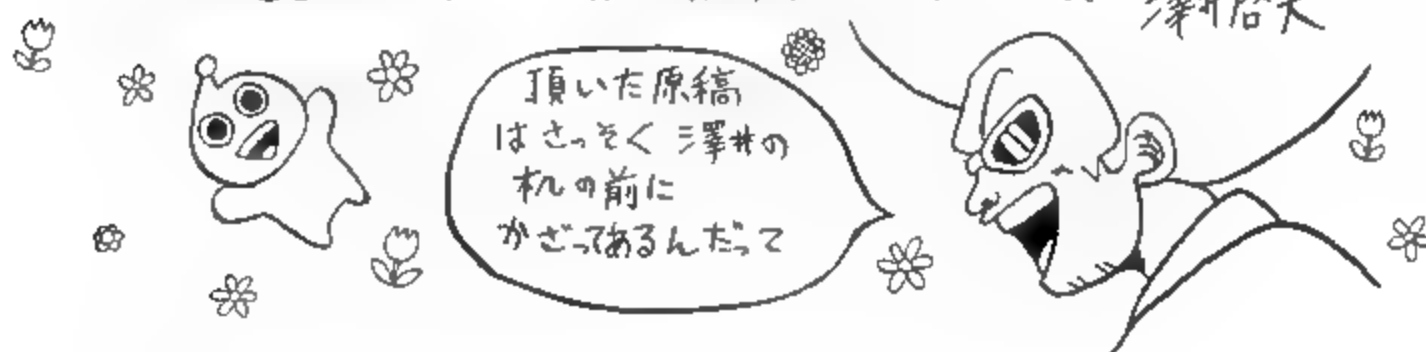 澤井啓夫
頂いた原稿
はさっそく澤井の
机の前に
かざってあるんだって